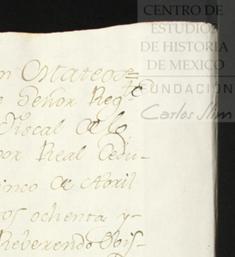 CENTRO DE
ESTUDIOS
DE HISTORIA
DE MEXICO
FUNDACIÓN
Carlos Slim
n Mateo=
Señor Reg
Fiscal de la
por Real Cedu=
inco de Abril
os ochenta y-
Reverendo Obis-